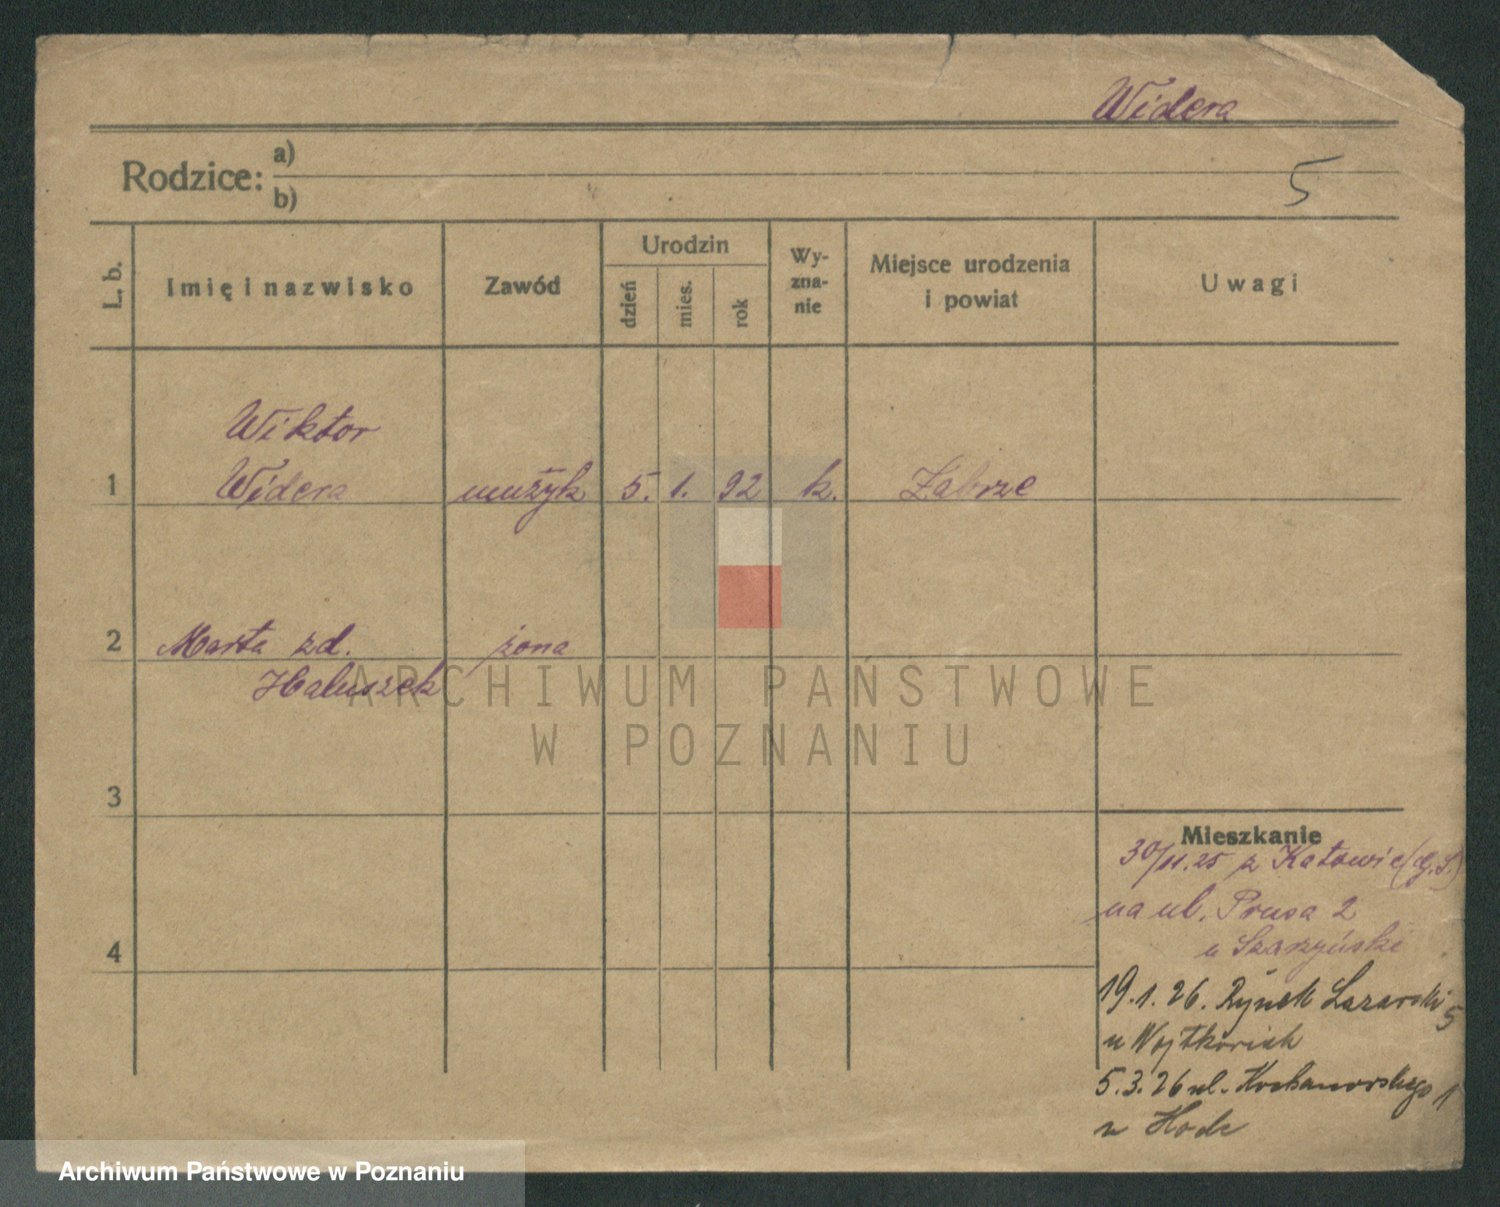 Widera
Rodzice: a)
b)
5
L. b.
Imię i nazwisko
Zawód
Urodzin
dzień
mies.
rok
Wy-
zna-
nie
Miejsce urodzenia
i powiat
Uwagi
Wiktor
1 Widera muzyk 5. 1. 92 k. Zabrze
2 Marta zd. żona
Haluszek
ARCHIWUM PAŃSTWOWE
W POZNANIU
3
Mieszkanie
30/11.25 z Katowic (G.S.)
na ul. Prusa 2
u
4
19.1.26. Rynek Łazarski 5
u
5.3.26 ul. Kochanowskiego 1
u
Archiwum Państwowe w Poznaniu